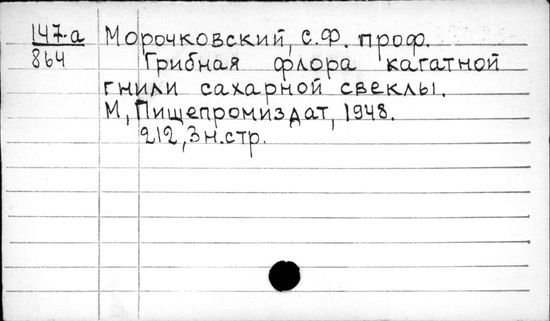 147-а Морочковский, С.Ф. проф.
864 Грибная флора кагатной
гнили сахарной свеклы.
М, Пищепромиздат, 1948.
212, 3 н.стр.